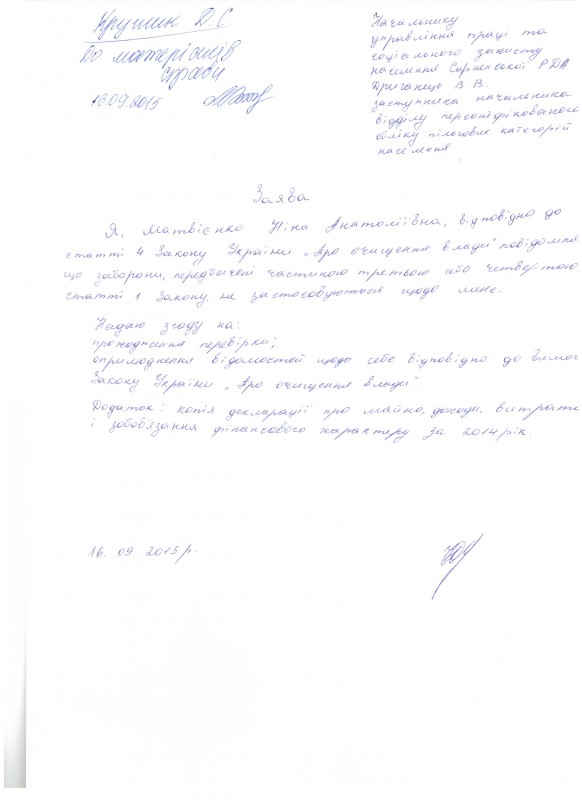 Крушик Д С
До матеріалів
справи
16.09.2015
Начальнику
управління праці та
соціального захисту
населення Сарненської РДА
Дриганець В В.
заступника начальника
відділу персоніфікованого
обліку пільгових категорій
населення
Заява
Я, Матвієнко Ніна Анатоліївна, відповідно до
статті 4 Закону України „Про очищення влади" повідомля
що заборони, передбачені частиною третьою або четвертою
статті 1 Закону, не застосовуються щодо мене.
Надаю згоду на:
проходження перевірки;
оприлюднення відомостей щодо себе відповідно до вимог
Закону України „Про очищення влади"
Додаток: копія декларації про майно, доходи, витрати
і зобов'язання фінансового характеру за 2014 рік.
16. 09. 2015 р.